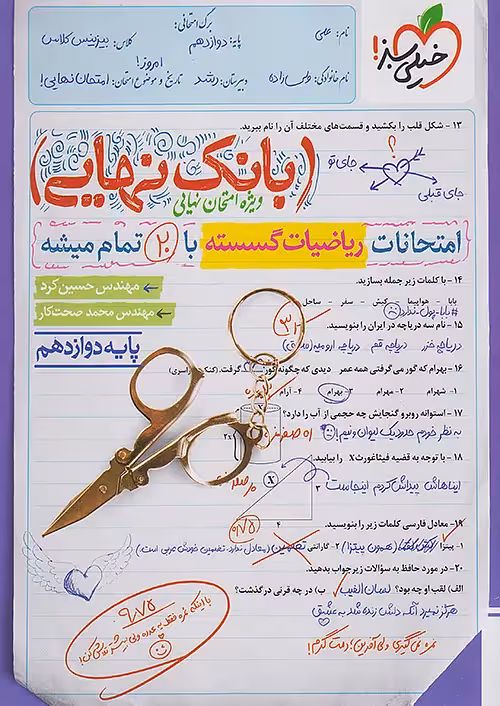 خیلی سبز!
برگ امتحانی:
نام: علمی
پایه: دوازدهم
کلاس: بیزینس کلاس
نام خانوادگی:
دبیرستان: رشد
امروز!
تاریخ و موضوع امتحان: امتحان نهایی!
۱۳ - شکل قلب را بکشید و قسمت‌های مختلف آن را نام ببرید.
؟
جای تو
جای قبلی
(بانک نهایی)
ویژه امتحان نهایی
امتحانات ریاضیات گسسته با ۲۰ تمام میشه
۱۴ - با کلمات زیر جمله بسازید.
مهندس حسین کرد
بابا - هواپیما - کیش - سفر - ساحل
مهندس محمد صحت‌کار
#بابا_پول_ندارد
۱۵ - نام سه دریاچه در ایران را بنویسید.
پایه دوازدهم
دریاچه خزر دریاچه قم دریاچه ارومیه
۱۶ - بهرام که گور می‌گرفتی همه عمر دیدی که چگونه گور گرفت.
۱- شهرام ۲- مهرام ۳- بهرام ۴- آرام
۱۷ - استوانه روبرو گنجایش چه حجمی از آب را دارد؟
به نظر خودم حدود یک لیوان و نیم!
۱۸ - با توجه به قضیه فیثاغورث X را بیابید.
ایناهاش پیداش کردم اینجاست
X
۳
۴
۱۹ - معادل فارسی کلمات زیر را بنویسید.
۱- پیتزا (همون پیتزا) ۲- گارانتی تضمین (معادل ندارد. تضمین خودش عربی است.)
۲۰- در مورد حافظ به سؤالات زیر جواب بدهید.
الف) لقب او چه بود؟ لسان الغیب ب) در چه قرنی درگذشت؟
هرگز نمیرد آنکه دلش زنده شد به عشق
نمره نمی‌گیری ولی آفرین! دمت گرم!
۹/۷۵